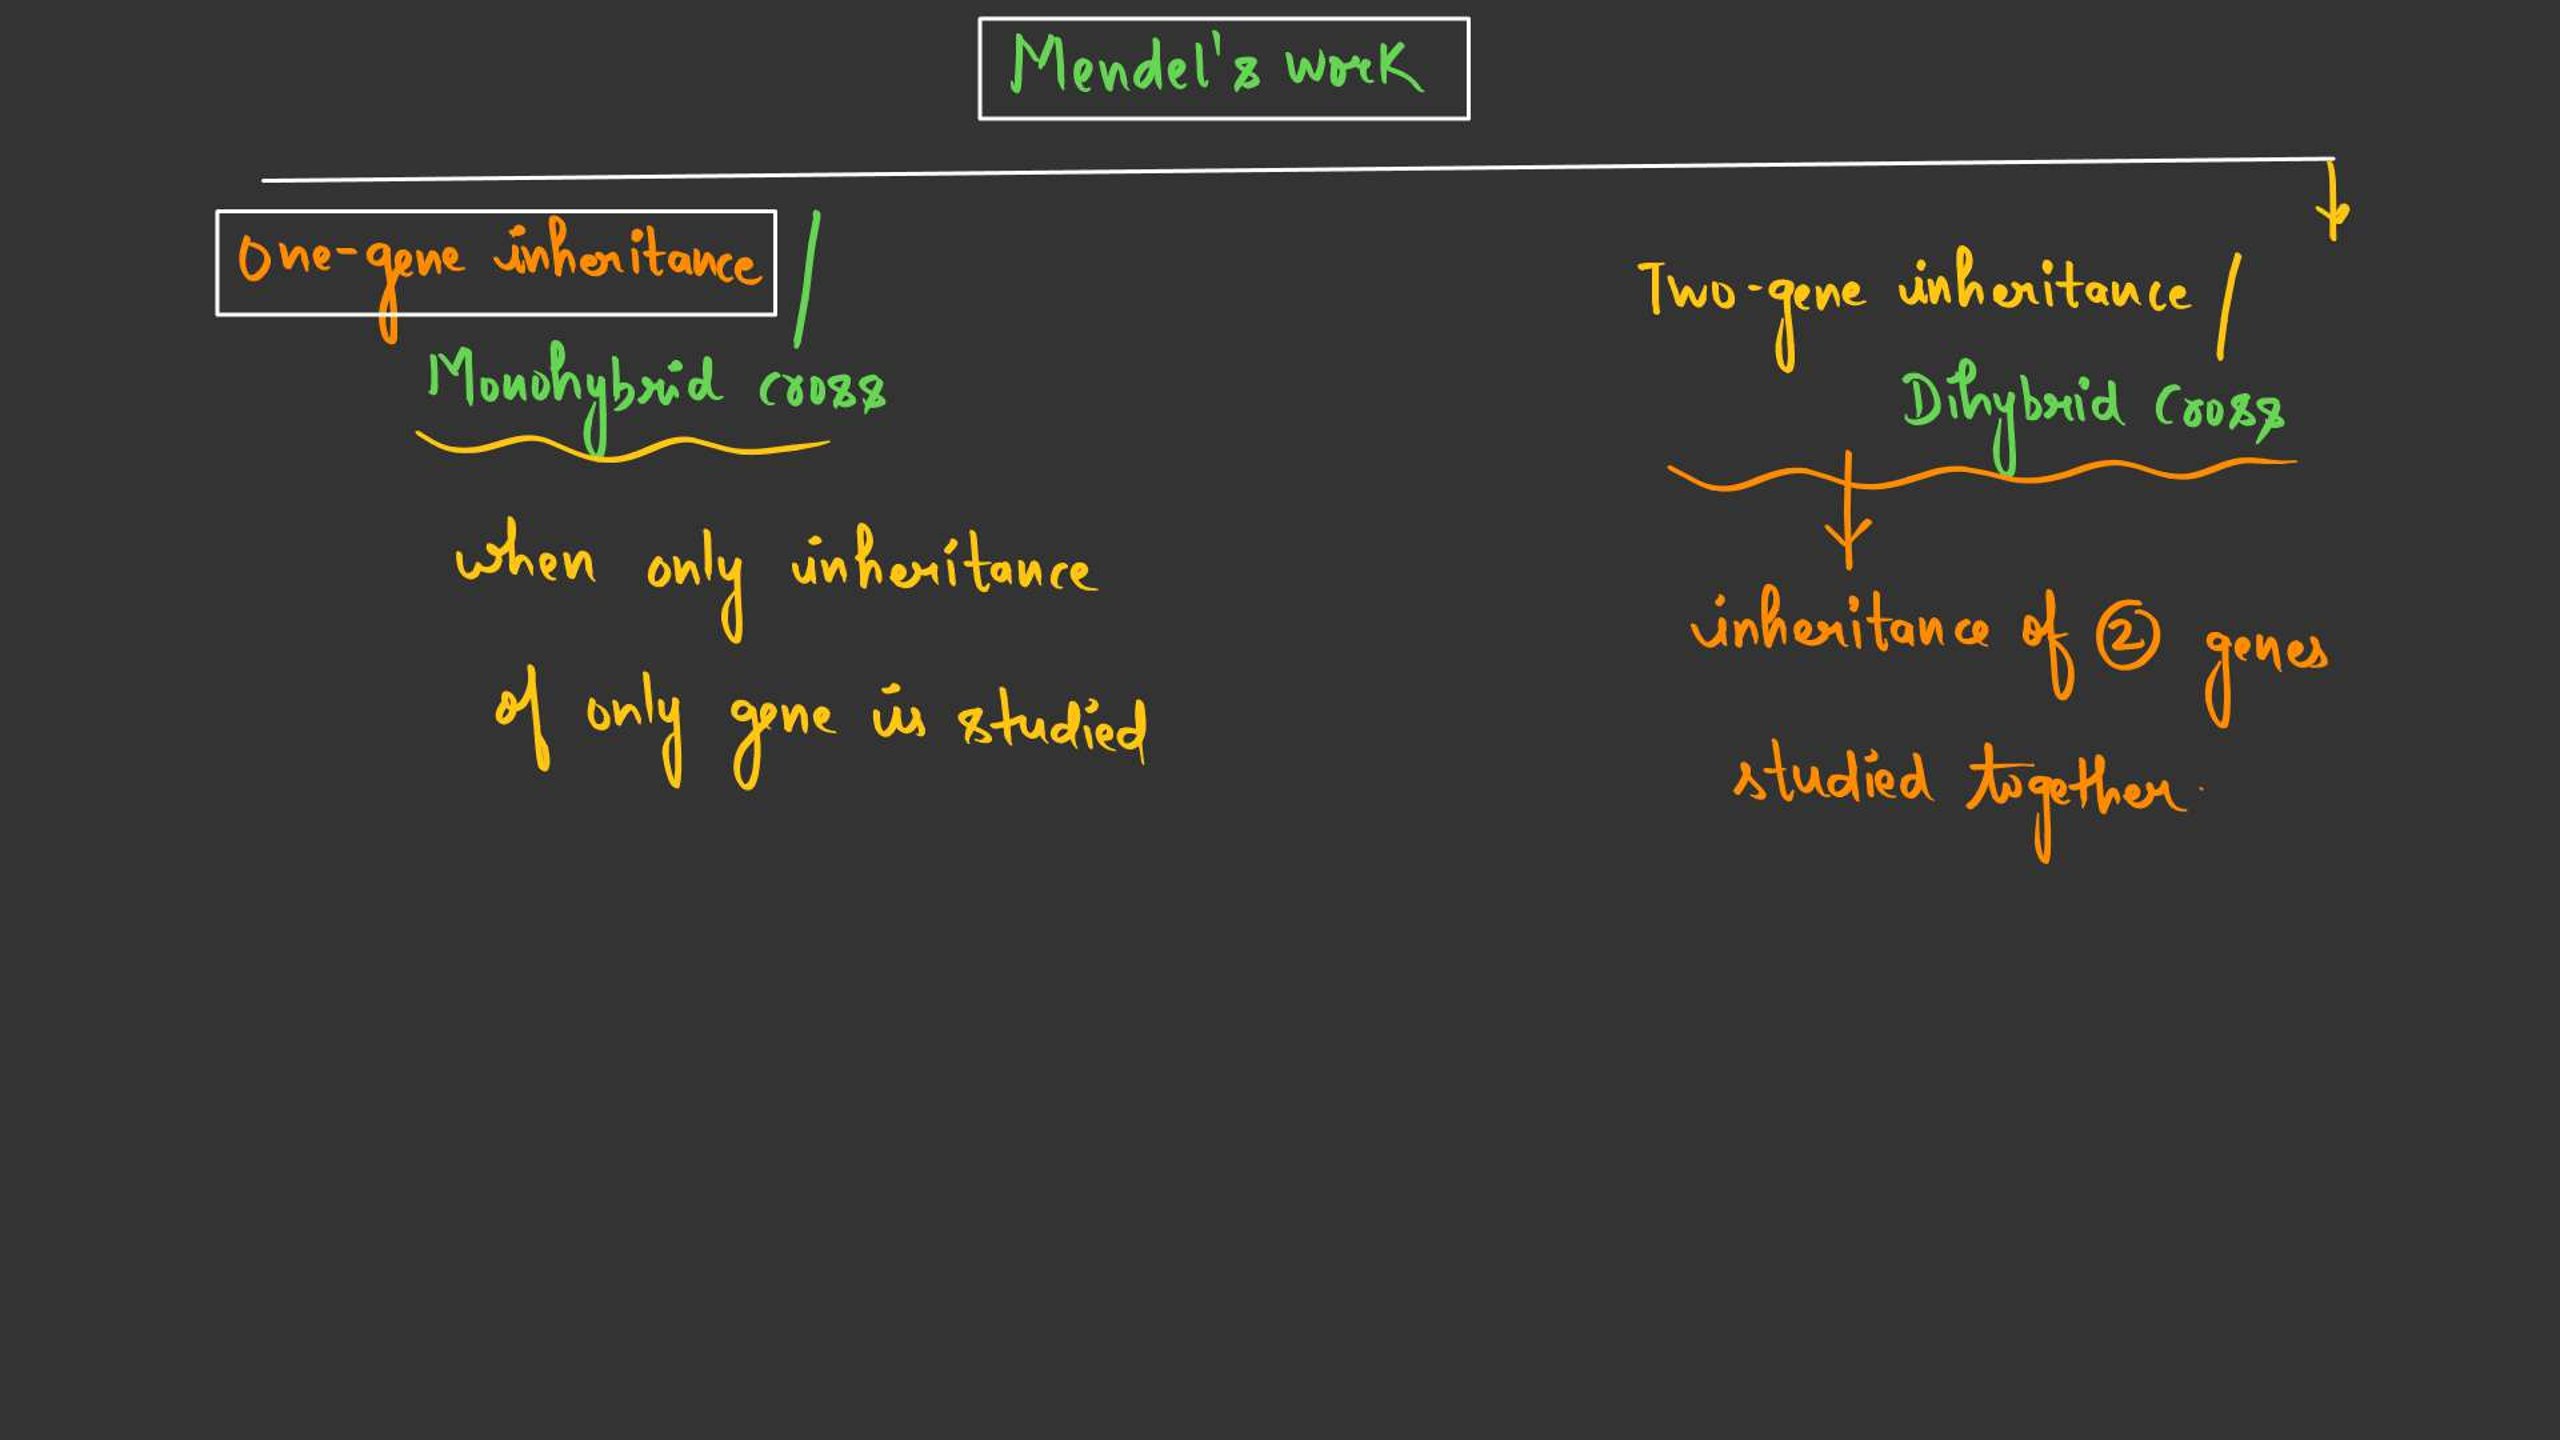 Mendel's work
One-gene inheritance /
Monohybrid cross
when only inheritance
of only gene is studied
Two-gene inheritance /
Dihybrid Cross
inheritance of 2 genes
studied together.